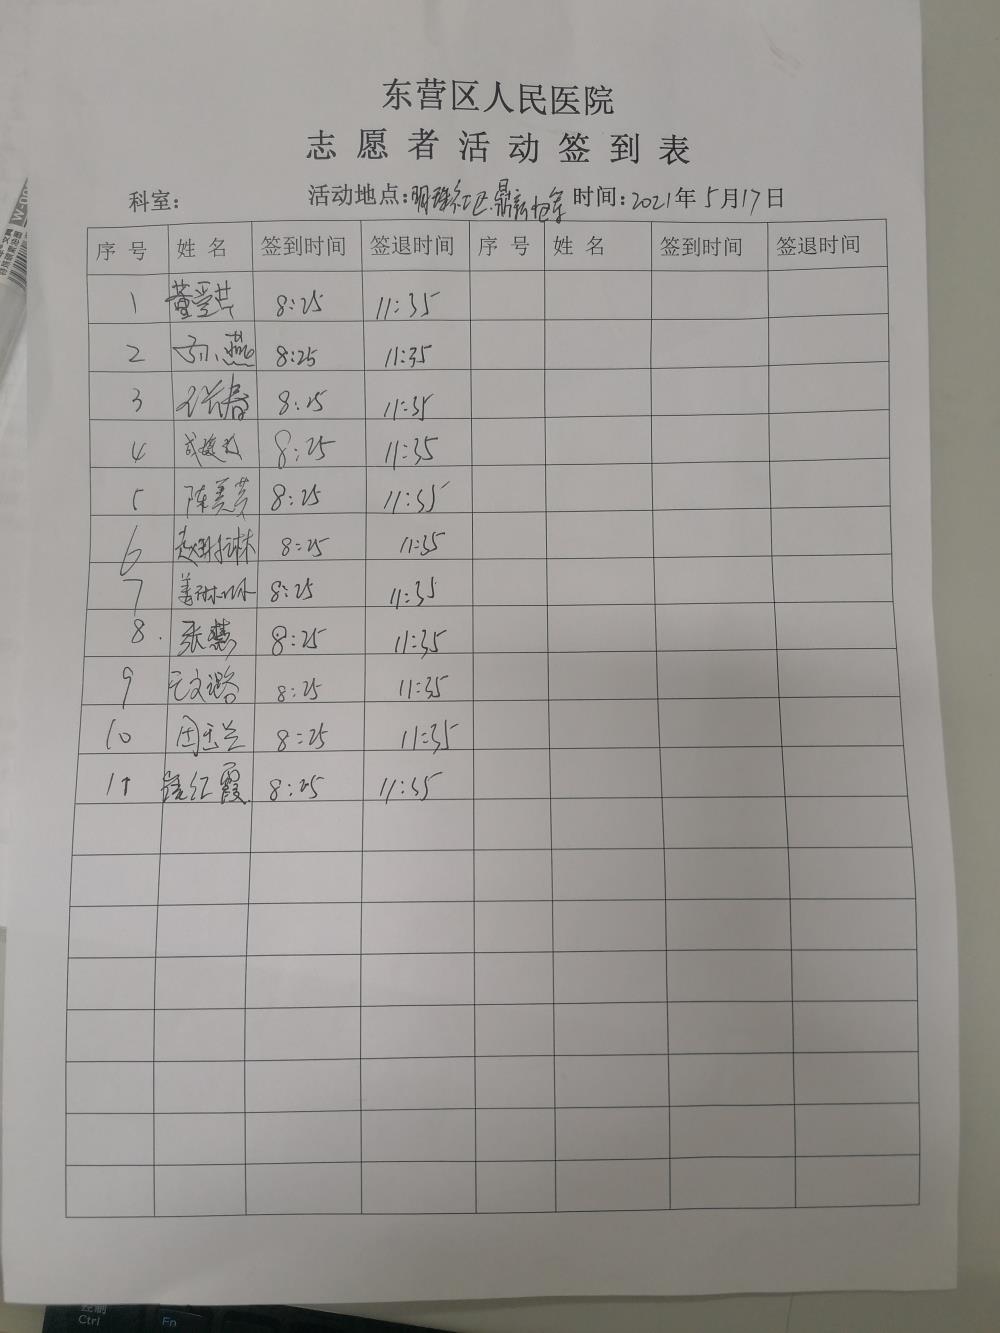 东营区人民医院
志愿者活动签到表
科室: 活动地点:明珠社区. 时间:2021年5月17日
序号 姓名 签到时间 签退时间 序号 姓名 签到时间 签退时间
1 8:25 11:35
2 孙燕 8:25 11:35
3 8:25 11:35
4 8:25 11:35
5 陈美芳 8:25 11:35
6 8:25 11:35
7 姜琳琳 8:25 11:35
8. 张慧 8:25 11:35
9 8:25 11:35
10 周玉兰 8:25 11:35
11 红霞 8:25 11:35
控制
Ctrl
Fn